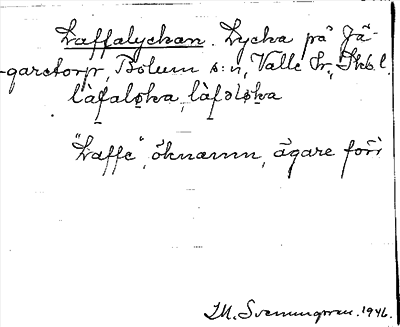 Laffalyckan. Lycka på Jä-
garetorp, Bolum s:n, Valle hr, Skb.l.
làfaløka, làfəløka
"Laffe", öknamn, ägare förr
M. Svenungsson. 1946.